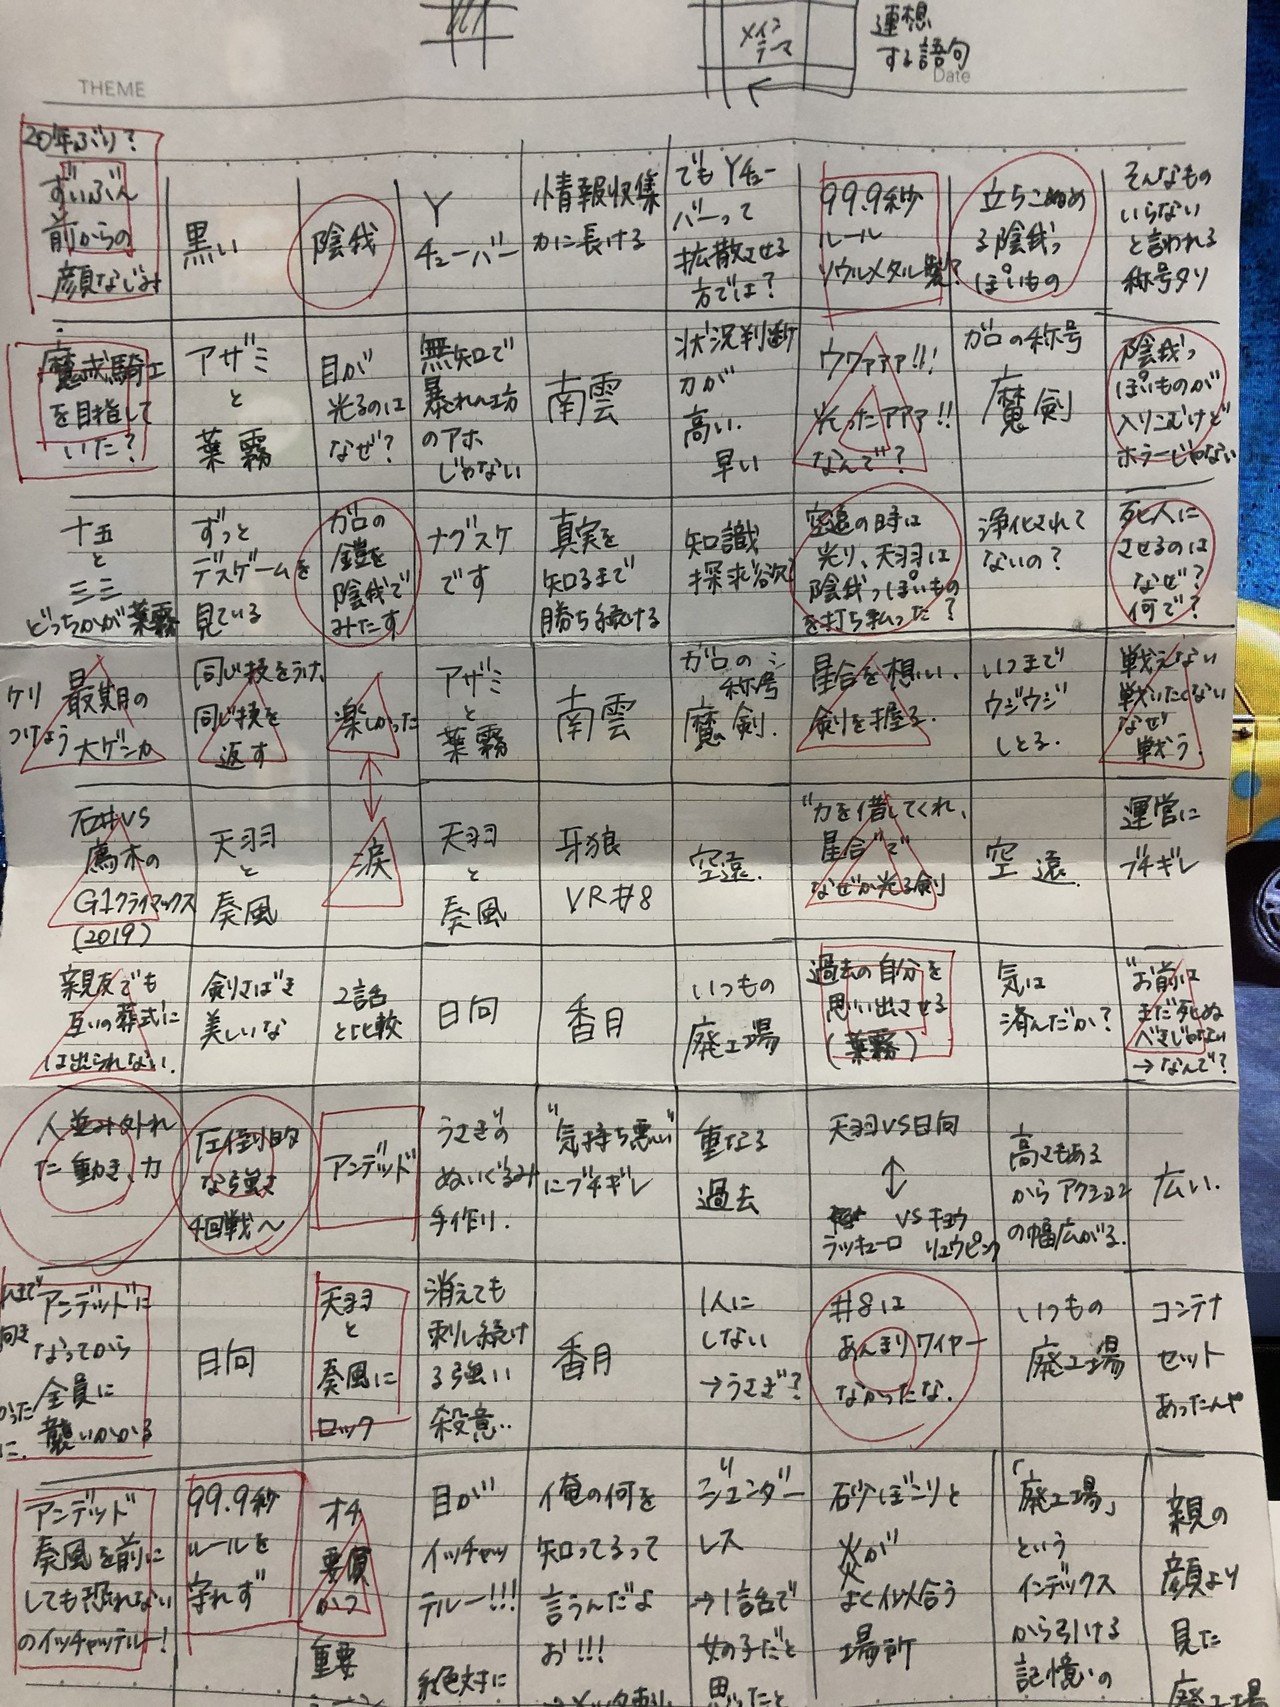 メイン
テーマ
連想
する語句
THEME
Date
20年ぶり?
ずいぶん
前からの
顔なじみ
黒い
陰我
Y
チューバー
情報収集
力に長ける
でもYチュー
バーって
拡散させる
方では?
99.9秒
ルール
ソウルメタル製?
立ちこめ
る陰我っ
ぽいもの
そんなもの
いらない
と言われる
称号タソ
魔戒騎士
を目指して
いた?
アザミ
と
葉霧
目が
光るのは
なぜ?
無知で
暴れん坊
のアホ
じゃない
南雲
状況判断
力が
高い.
早い
ウワァァァ!!!
光ったアアア!!
なんで?
ガロの称号
魔剣
陰我っ
ぽいものが
入りこむけど
ホラーじゃない
十五
と
三三
どっちかが葉霧
ずっと
デスゲームを
見ている
ガロの
鎧を
陰我で
みたす
ナグスケ
です
真実を
知るまで
勝ち続ける
知識
探求欲
空遠の時は
光り、天羽は
陰我っぽいもの
を打ち払った?
浄化されて
ないの?
死人に
させるのは
なぜ?
何で?
ケリ
つけよう
最期の
大ゲンカ
同じ技をうけ、
同じ技を
返す
楽しかった
アザミ
と
葉霧
南雲
ガロの
称号
魔剣.
星合を想い、
剣を握る.
いつまで
ウジウジ
しとる.
戦えない
戦いたくない
なぜ
戦う.
石井VS
鷹木の
G1クライマックス
(2019)
天羽
と
奏風
涙
天羽
と
奏風
牙狼
VR#8
空遠.
"力を借してくれ、
星合"で
なぜか光る剣
空遠.
運営に
ブチギレ
親友でも
互いの葬式に
は出られない.
剣さばき
美しいな
2話
と比較
日向
香月
いつもの
廃工場
過去の自分を
思い出させる
(葉霧)
気は
済んだか?
"お前は
まだ死ぬ
べきじゃない
→なんで?
人並み外れ
た動き、力
圧倒的
なら強さ
4回戦〜
アンデッド
うさぎの
ぬいぐるみ
手作り.
"気持ち悪い"
にブチギレ
重なる
過去
天羽VS日向
↕
ラッキューロ VS キョウ
リュウピンク
高さもある
からアクション
の幅広がる.
広い.
アンデッドに
なってから
全員に
襲いかかる
日向
天羽
と
奏風に
ロック
消えても
刺し続け
る強い
殺意..
香月
1人に
しない
→うさぎ?
#8は
あんまりワイヤー
なかったな.
いつもの
廃工場
コンテナ
セット
あったんや
アンデッド
奏風を前に
しても恐れない
のイッチャッテル―!
99.9秒
ルールを
守れず
オチ
要員
かつ
重要
目が
イッチャッ
テルー!!!
絶対に
俺の何を
知ってるって
言うんだよ
お!!!
ジェンダー
レス
→1話で
女の子だと
思ったと
砂ぼこりと
炎が
よく似合う
場所
「廃工場」
という
インデックス
から引ける
記憶の
親の
顔より
見た
廃工場